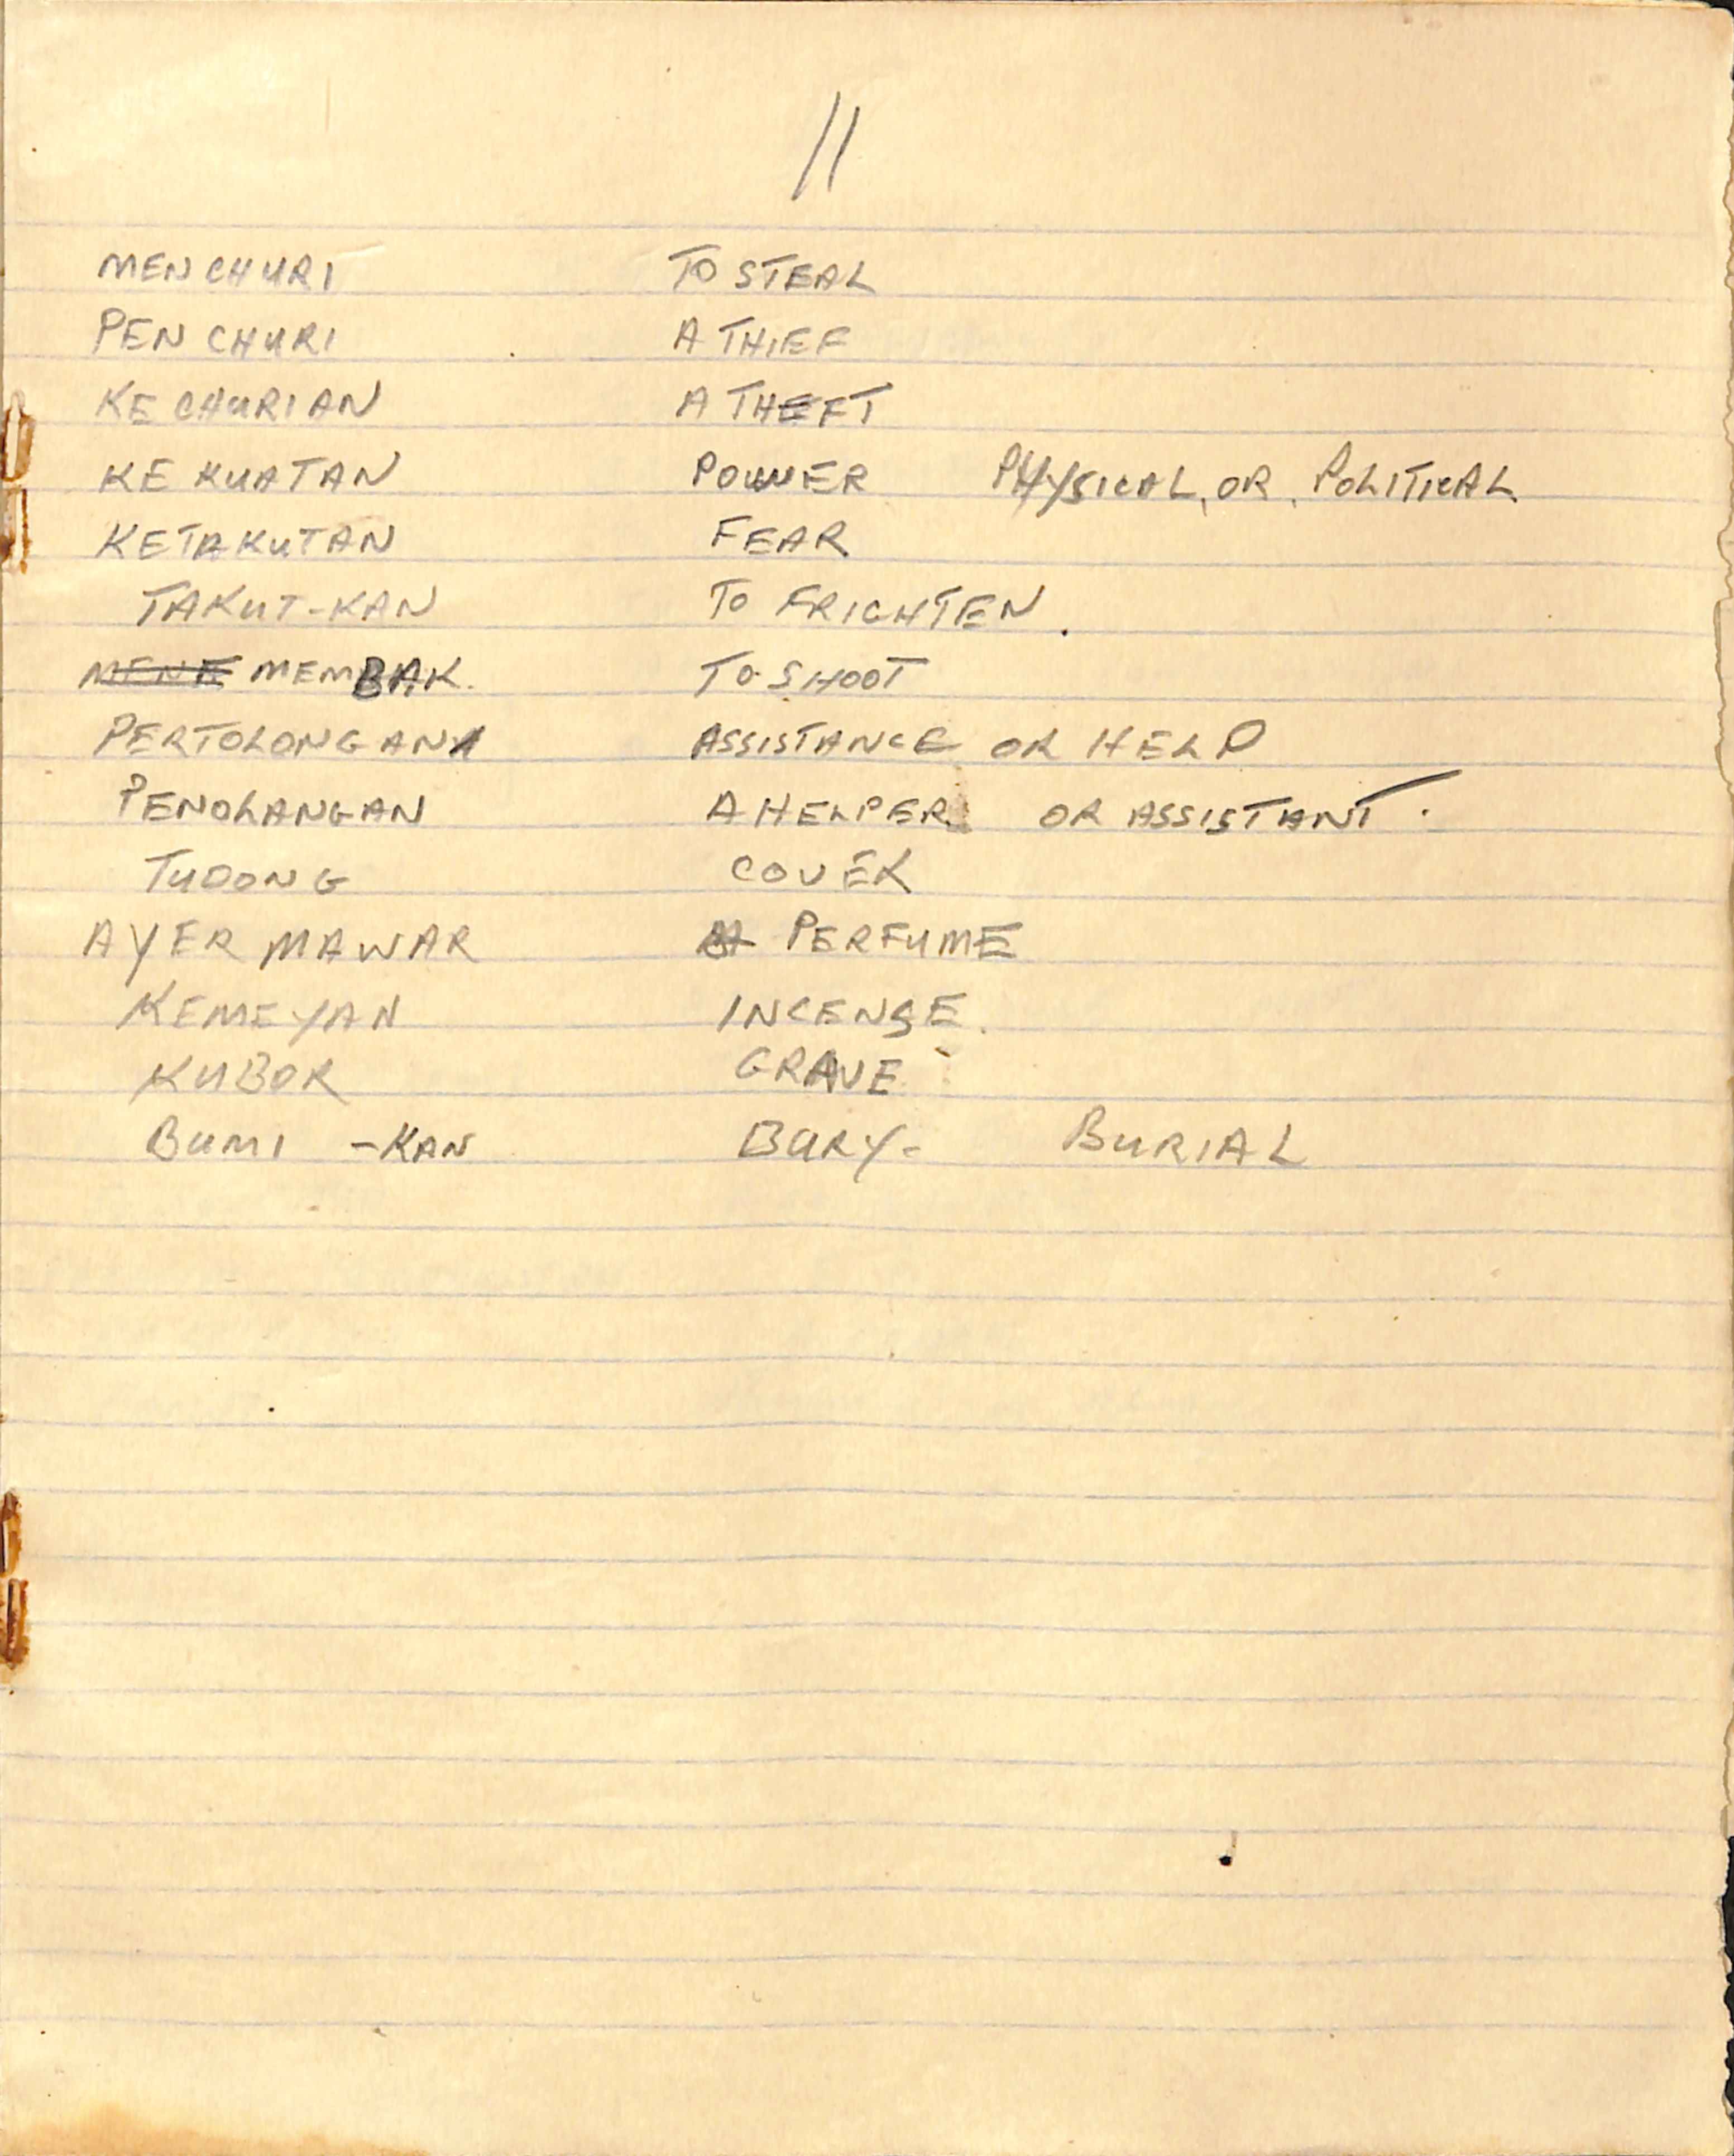 11
MENCHURI TO STEAL
PENCHURI A THIEF
KECHURIAN A THEFT
KEKUATAN POWER PHYSICAL, OR, POLITICAL.
KETAKUTAN FEAR
TAKUT-KAN TO FRIGHTEN.
MEMBAK. TO SHOOT
PERTOLONGAN ASSISTANCE OR HELP
PENOLANGAN A HELPER OR ASSISTANT.
TUDONG COVER
AYER MAWAR PERFUME
KEMEYAN INCENSE.
KUBOR GRAVE
BUMI -KAN BURY- BURIAL